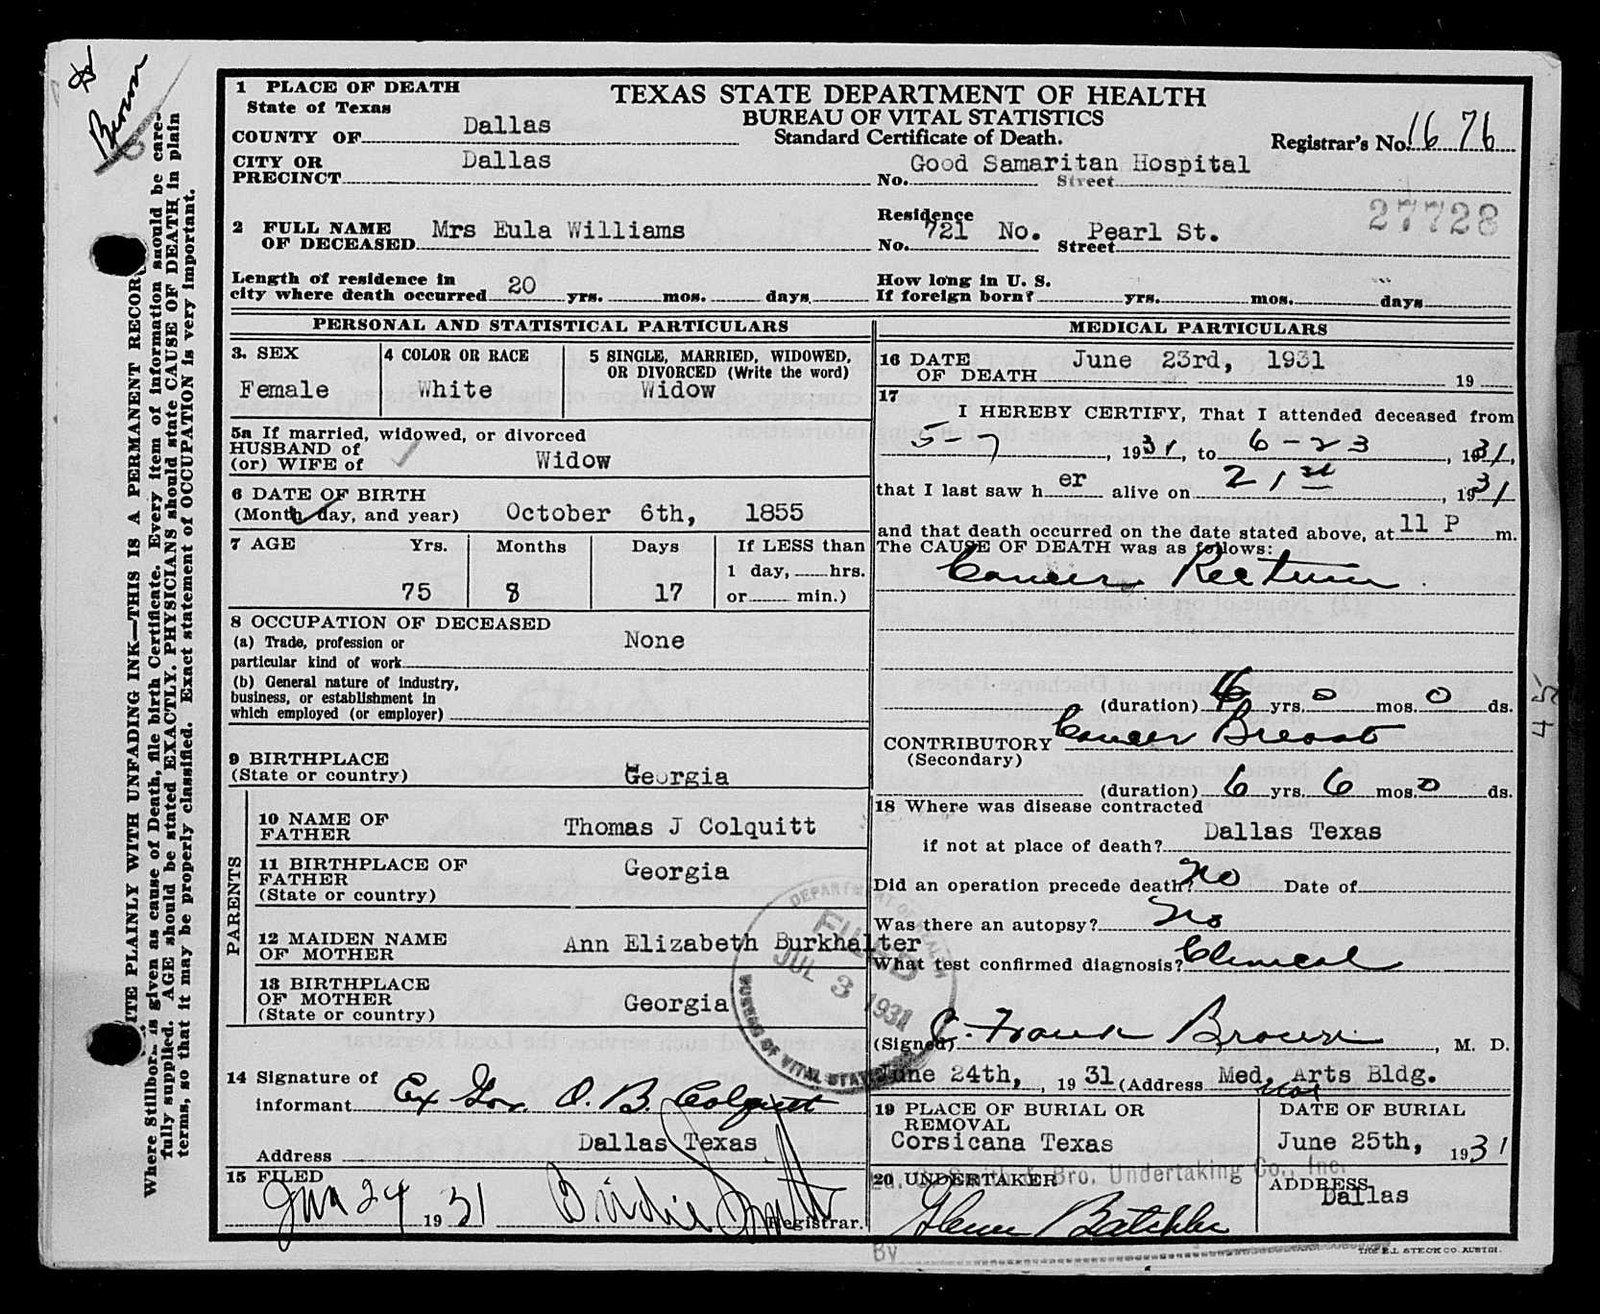 Brown
WRITE PLAINLY WITH UNFADING INK—THIS IS A PERMANENT RECORD
Where Stillborn is given as cause of Death, file birth Certificate. Every item of information should be care-
fully supplied. AGE should be stated EXACTLY. PHYSICIANS should state CAUSE OF DEATH in plain
terms, so that it may be properly classified. Exact statement of OCCUPATION is very important.
1 PLACE OF DEATH
State of Texas
COUNTY OF Dallas
CITY OR PRECINCT Dallas
TEXAS STATE DEPARTMENT OF HEALTH
BUREAU OF VITAL STATISTICS
Standard Certificate of Death.
Registrar's No. 1676
Good Samaritan Hospital
No. Street
27728
2 FULL NAME OF DECEASED Mrs Eula Williams
Residence No. 721 No. Pearl St. Street
Length of residence in city where death occurred 20 yrs. mos. days
How long in U. S. If foreign born? yrs. mos. days
PERSONAL AND STATISTICAL PARTICULARS
3. SEX Female
4 COLOR OR RACE White
5 SINGLE, MARRIED, WIDOWED, OR DIVORCED (Write the word) Widow
5a If married, widowed, or divorced
HUSBAND of
(or) WIFE of Widow
6 DATE OF BIRTH
(Month day, and year) October 6th, 1855
7 AGE Yrs. Months Days If LESS than
75 8 17 1 day, hrs. or min.)
8 OCCUPATION OF DECEASED
(a) Trade, profession or particular kind of work None
(b) General nature of industry,
business, or establishment in
which employed (or employer)
9 BIRTHPLACE
(State or country) Georgia
PARENTS
10 NAME OF FATHER Thomas J Colquitt
11 BIRTHPLACE OF FATHER
(State or country) Georgia
12 MAIDEN NAME OF MOTHER Ann Elizabeth Burkhalter
13 BIRTHPLACE OF MOTHER
(State or country) Georgia
14 Signature of informant Ex Gov. O. B. Colquitt
Address Dallas Texas
15 FILED Jun 24 1931 Birdie Smith Registrar.
MEDICAL PARTICULARS
16 DATE OF DEATH June 23rd, 1931 19
17
I HEREBY CERTIFY, That I attended deceased from
5-7, 1931, to 6-23, 1931,
that I last saw her alive on 21st, 1931
and that death occurred on the date stated above, at 11 P m.
The CAUSE OF DEATH was as follows:
Cancer Rectum
(duration) yrs. 0 mos. 0 ds.
CONTRIBUTORY Cancer Breast
(Secondary)
(duration) 6 yrs. 6 mos. 0 ds.
45
18 Where was disease contracted
if not at place of death? Dallas Texas
Did an operation precede death? No Date of
Was there an autopsy? No
What test confirmed diagnosis? Clinical
(Signed) C. Frank Brown, M. D.
June 24th, 1931 (Address Med. Arts Bldg.
DEPARTMENT OF HEALTH
FILED
JUL 3 1931
BUREAU OF VITAL STATISTICS
19 PLACE OF BURIAL OR REMOVAL
Corsicana Texas
DATE OF BURIAL
June 25th, 1931
20 UNDERTAKER Bro. Undertaking Co., Inc.
Glenn Batchler
ADDRESS Dallas
By
THE E.L. STECK CO. AUSTIN.